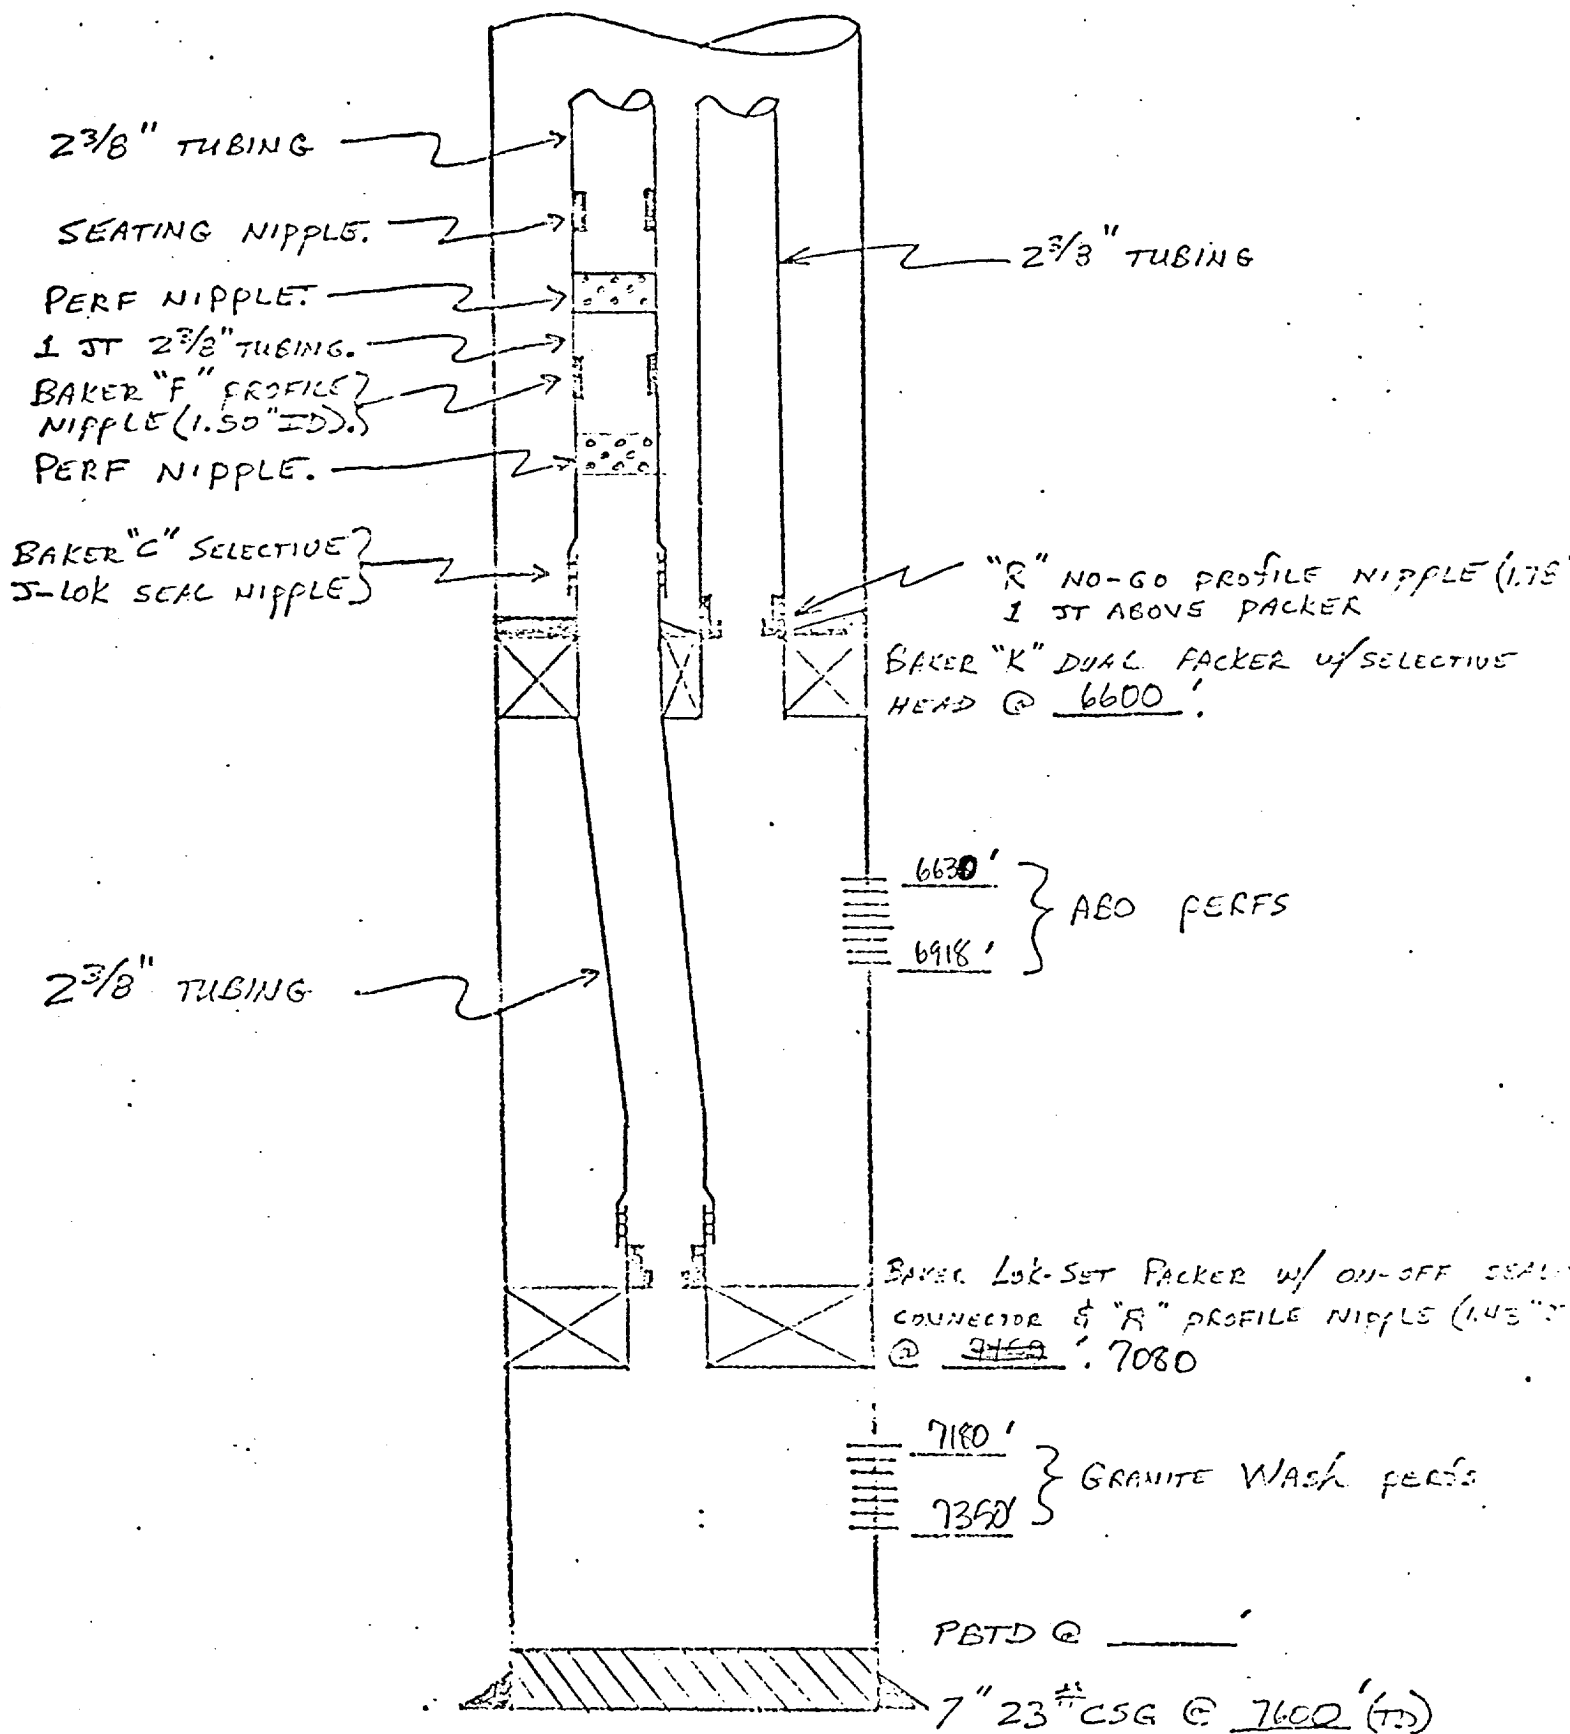 2 3/8" TUBING
SEATING NIPPLE.
PERF NIPPLE.
1 JT 2 3/8" TUBING.
BAKER "F" PROFILE
NIPPLE (1.50" ID).
PERF NIPPLE.
BAKER "C" SELECTIVE
J-LOK SEAL NIPPLE
2 3/8" TUBING
2 3/8" TUBING
"R" NO-GO PROFILE NIPPLE (1.78"
1 JT ABOVE PACKER
BAKER "K" DUAL PACKER W/ SELECTIVE
HEAD @ 6600'.
6630'
ABO PERFS
6918'
BAKER LOK-SET PACKER W/ ON-OFF SEAL
CONNECTOR & "R" PROFILE NIPPLE (1.43"
@ '. 7080
7180'
GRANITE WASH PERFS
7350'
PBTD @ '
7" 23# CSG @ 7600' (TD)